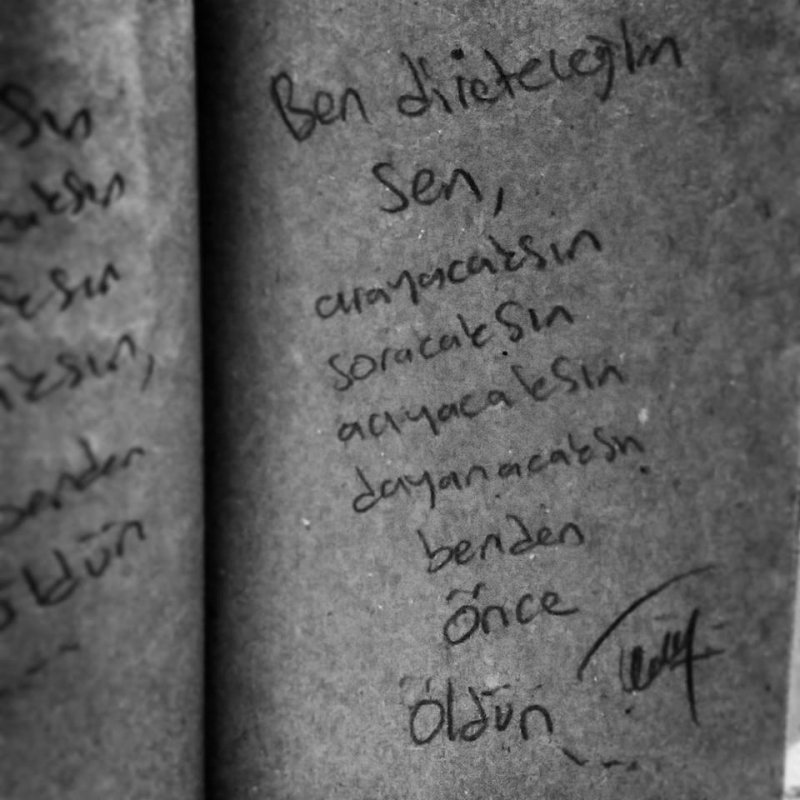 sın
caksın
ksın
aksın,
benden
öldün
---
Ben direteceğim
Sen,
arayacaksın
soracaksın
acıyacaksın
dayanacaksın
benden
önce
öldün
---